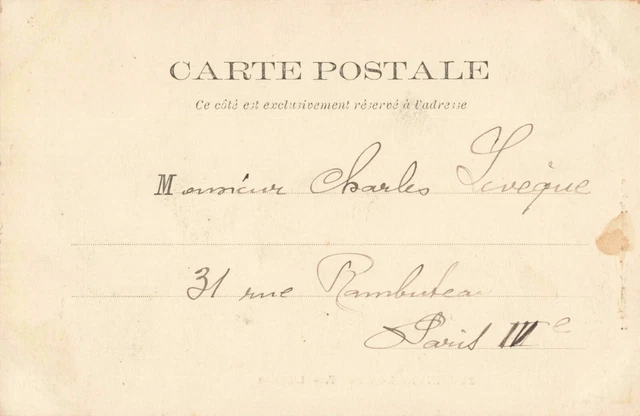 CARTE POSTALE
Ce côté est exclusivement réservé à l'adresse
Monsieur Charles Levêque
31 rue Rambuteau
Paris